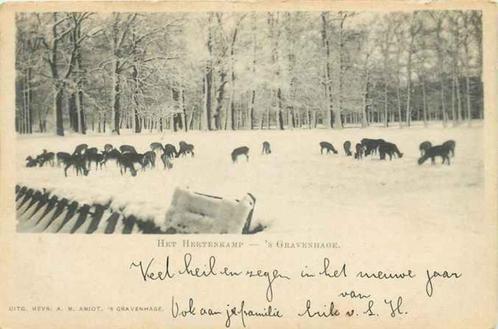 HET HERTENKAMP — 'S GRAVENHAGE.
Veel heil en zegen in het nieuwe jaar
van
Ook aan je familie
UITG. HEYR. A. M. AMIOT, 'S GRAVENHAGE.